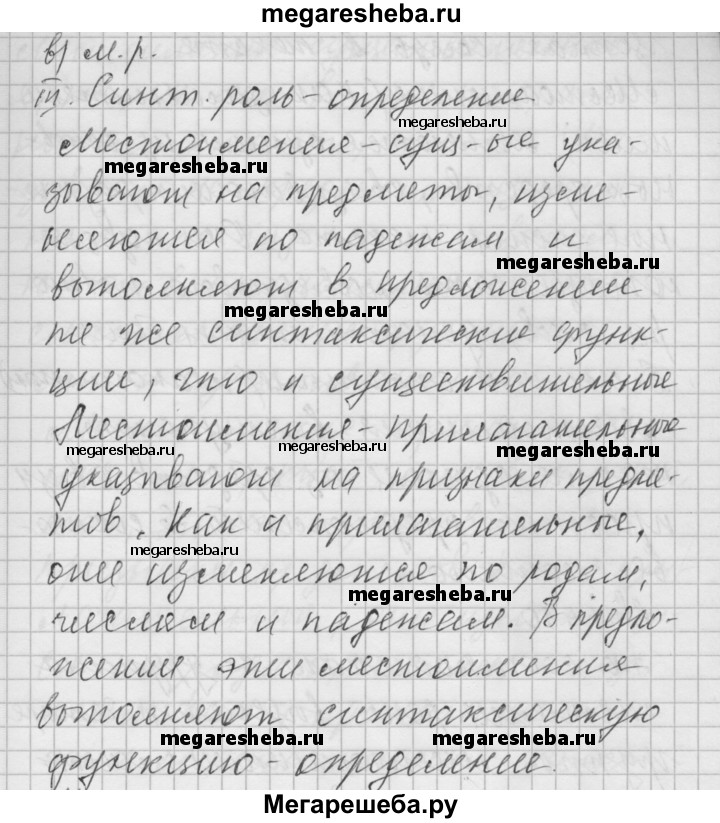 megaresheba.ru
в) м.р.
III. Синт. роль – определение
megaresheba.ru
Местоимения – сущ-ые ука-
megaresheba.ru
зывают на предметы, изме-
няются по падежам и
megaresheba.ru
выполняют в предложении
megaresheba.ru
те же синтаксические функ-
ции, что и существительные
Местоимения – прилагательные
megaresheba.ru megaresheba.ru
указывают на признаки предме-
тов. Как и прилагательные,
megaresheba.ru
они изменяются по родам,
megaresheba.ru
числам и падежам. В предло-
жении эти местоимения
выполняют синтаксическую
megaresheba.ru megaresheba.ru
функцию – определение.
Мегарешеба.ру